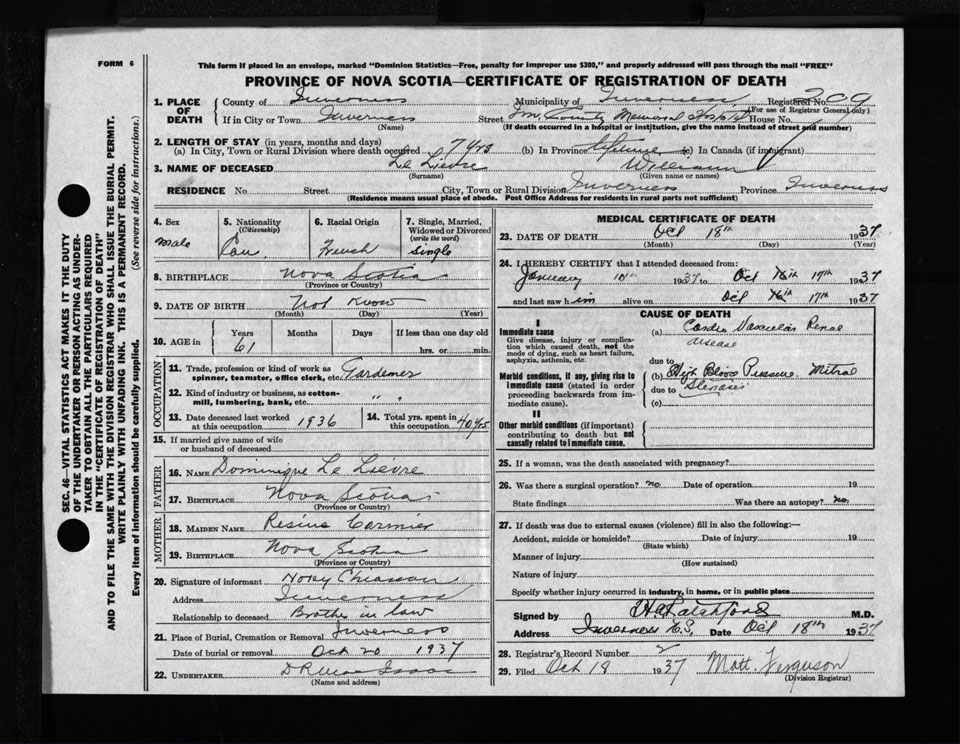 FORM 6
This form if placed in an envelope, marked "Dominion Statistics—Free, penalty for improper use $300," and properly addressed will pass through the mail "FREE"
PROVINCE OF NOVA SCOTIA—CERTIFICATE OF REGISTRATION OF DEATH
1. PLACE OF DEATH
County of Inverness Municipality of Inverness Registered No. 209
(For use of Registrar General only)
If in City or Town Inverness Street Inv. County Memorial Hospital House No.
(Name) (If death occurred in a hospital or institution, give the name instead of street and number)
2. LENGTH OF STAY (in years, months and days)
(a) In City, Town or Rural Division where death occurred 7 yrs (b) In Province Lifetime (c) In Canada (if immigrant)
3. NAME OF DECEASED Le Lievre William
(Surname) (Given name or names)
RESIDENCE No. Street City, Town or Rural Division Inverness Province Inverness
(Residence means usual place of abode. Post Office Address for residents in rural parts not sufficient)
4. Sex Male
5. Nationality (Citizenship) Can.
6. Racial Origin French
7. Single, Married, Widowed or Divorced (write the word) Single
8. BIRTHPLACE Nova Scotia
(Province or Country)
9. DATE OF BIRTH Not Know
(Month) (Day) (Year)
10. AGE in Years 61 Months Days If less than one day old hrs. or min.
OCCUPATION
11. Trade, profession or kind of work as spinner, teamster, office clerk, etc. Gardener
12. Kind of industry or business, as cotton-mill, lumbering, bank, etc. " "
13. Date deceased last worked at this occupation 1936
14. Total yrs. spent in this occupation 40 yrs.
15. If married give name of wife or husband of deceased
FATHER
16. NAME Dominique Le Lievre
17. BIRTHPLACE Nova Scotia
(Province or Country)
MOTHER
18. MAIDEN NAME
19. BIRTHPLACE Nova Scotia
(Province or Country)
20. Signature of informant Chiasson
Address Inverness
Relationship to deceased Brother in law
21. Place of Burial, Cremation or Removal Inverness
Date of burial or removal Oct 20 1937
22. UNDERTAKER
(Name and address)
MEDICAL CERTIFICATE OF DEATH
23. DATE OF DEATH Oct 18th 1937
(Month) (Day) (Year)
24. I HEREBY CERTIFY that I attended deceased from:
January 10th 1937 to Oct 17th 1937
and last saw him alive on Oct 17th 1937
CAUSE OF DEATH
I
Immediate cause
Give disease, injury or complication which caused death, not the mode of dying, such as heart failure, asphyxia, asthenia, etc.
(a) Cardio Vascular Renal disease
due to
Morbid conditions, if any, giving rise to immediate cause (stated in order proceeding backwards from immediate cause).
(b) High Blood Pressure. Mitral Stenosis
due to
(c)
II
Other morbid conditions (if important) contributing to death but not causally related to immediate cause.
25. If a woman, was the death associated with pregnancy?
26. Was there a surgical operation? no. Date of operation 19
State findings Was there an autopsy? no.
27. If death was due to external causes (violence) fill in also the following:—
Accident, suicide or homicide? Date of injury 19
(State which)
Manner of injury
(How sustained)
Nature of injury
Specify whether injury occurred in industry, in home, or in public place
Signed by M.D.
Address Inverness N.S. Date Oct 18th 1937
28. Registrar's Record Number
29. Filed Oct 19 1937 Matt. Ferguson
(Division Registrar)
SEC. 46—VITAL STATISTICS ACT MAKES IT THE DUTY
OF THE UNDERTAKER OR PERSON ACTING AS UNDER-
TAKER TO OBTAIN ALL THE PARTICULARS REQUIRED
IN THE "CERTIFICATE OF REGISTRATION OF DEATH"
AND TO FILE THE SAME WITH THE DIVISION REGISTRAR WHO SHALL ISSUE THE BURIAL PERMIT.
WRITE PLAINLY WITH UNFADING INK. THIS IS A PERMANENT RECORD.
Every item of information should be carefully supplied. (See reverse side for instructions.)